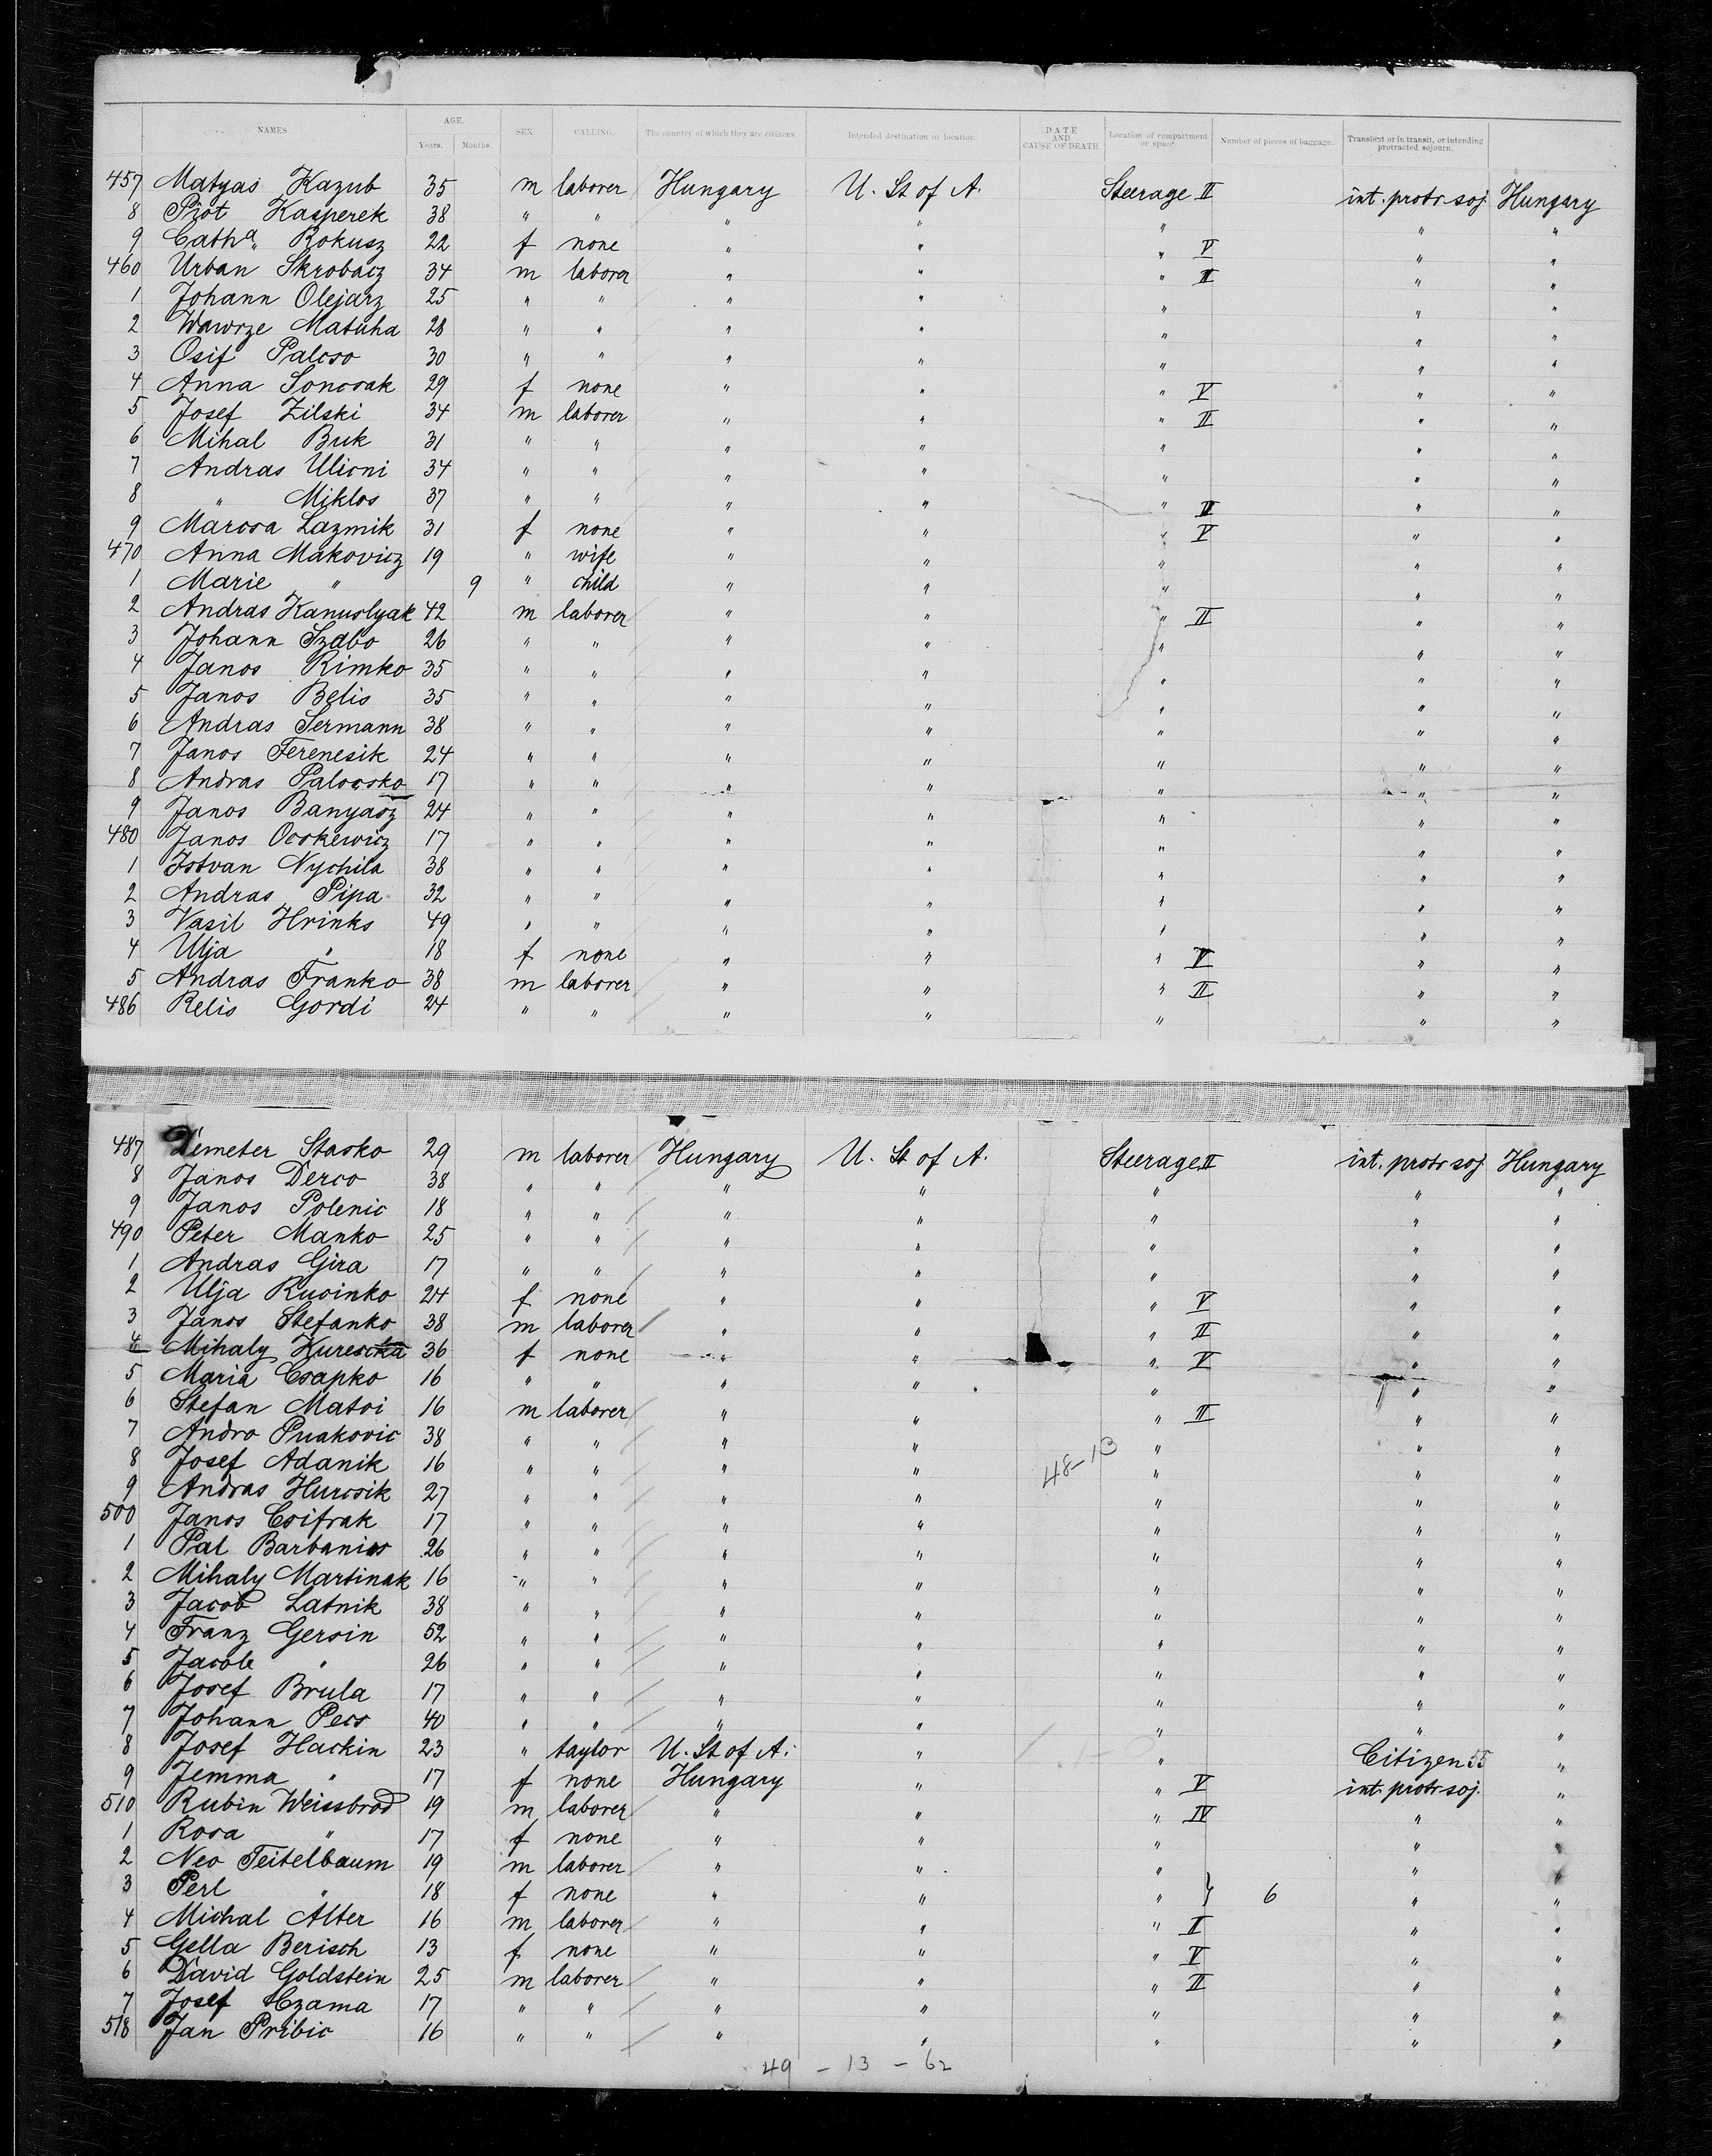 NAMES. AGE. Years. Months. SEX. CALLING. The country of which they are citizens. Intended destination or location. DATE AND CAUSE OF DEATH. Location of compartment or space. Number of pieces of baggage. Transient or in transit, or intending protracted sojourn.
457 Matyas Kazub 35 m laborer Hungary U. St of A. Steerage II int. protr soj. Hungary
8 Piot Kasperek 38 " " " " " " "
9 Cath<sup>a</sup> Rokusz 22 f none " " " V " "
460 Urban Skrobacz 34 m laborer " " " II " "
1 Johann Olejarz 25 " " " " " " "
2 Wawrze Matuha 28 " " " " " " "
3 Osif Palcso 30 " " " " " " "
4 Anna Soncsak 29 f none " " " V " "
5 Josef Zilski 34 m laborer " " " II " "
6 Mihal Buk 31 " " " " " " "
7 Andras Ulicni 34 " " " " " " "
8 " Miklos 37 " " " " " II " "
9 Marcsa Lazmik 31 f none " " " V " "
470 Anna Makovicz 19 " wife " " " " "
1 Marie " 9 " child " " " " "
2 Andras Kanuslyak 42 m laborer " " " II " "
3 Johann Szabo 26 " " " " " " "
4 Janos Rimko 35 " " " " " " "
5 Janos Belis 35 " " " " " " "
6 Andras Sermann 38 " " " " " " "
7 Janos Ferenesik 24 " " " " " " "
8 Andras Palocsko 17 " " " " " " "
9 Janos Banyasz 24 " " " " " " "
480 Janos Ocskewicz 17 " " " " " " "
1 Istvan Nychila 38 " " " " " " "
2 Andras Pipa 32 " " " " " " "
3 Vasil Hrinks 49 " " " " " " "
4 Ulja " 18 f none " " " V " "
5 Andras Franko 38 m laborer " " " II " "
486 Relis Gordi 24 " " " " " " "
487 Demeter Stasko 29 m laborer Hungary U. St of A. Steerage II int. protr soj Hungary
8 Janos Derco 38 " " " " " " "
9 Janos Polenic 18 " " " " " " "
490 Peter Manko 25 " " " " " " "
1 Andras Gira 17 " " " " " " "
2 Ulja Rusinko 24 f none " " " V " "
3 Janos Stefanko 38 m laborer " " " II " "
4 Mihaly Kurescka 36 f none " " " V " "
5 Maria Csapko 16 " " " " " " "
6 Stefan Matoi 16 m laborer " " " II " "
7 Andro Puakovic 38 " " " " " " "
48-13
8 Josef Adanik 16 " " " " " " "
9 Andras Hurcsik 27 " " " " " " "
500 Janos Csifrak 17 " " " " " " "
1 Pal Barbanics 26 " " " " " " "
2 Mihaly Martinak 16 " " " " " " "
3 Jacob Latnik 38 " " " " " " "
4 Franz Gersin 52 " " " " " " "
5 Jacob " 26 " " " " " " "
6 Josef Brula 17 " " " " " " "
7 Johann Pecs 40 " " " " " " "
8 Josef Hackin 23 " taylor U. St of A. " " Citizen 55 "
9 Jemma " 17 f none Hungary " " V int. protr soj. "
510 Rubin Weissbrod 19 m laborer " " " IV " "
1 Rosa " 17 f none " " " " "
2 Neo Teitelbaum 19 m laborer " " " " "
3 Perl " 18 f none " " " } 6 " "
4 Michal Alter 16 m laborer " " " II " "
5 Gella Berisch 13 f none " " " V " "
6 David Goldstein 25 m laborer " " " II " "
7 Josef Czama 17 " " " " " " "
518 Jan Pribic 16 " " " " " " "
49 - 13 - 62